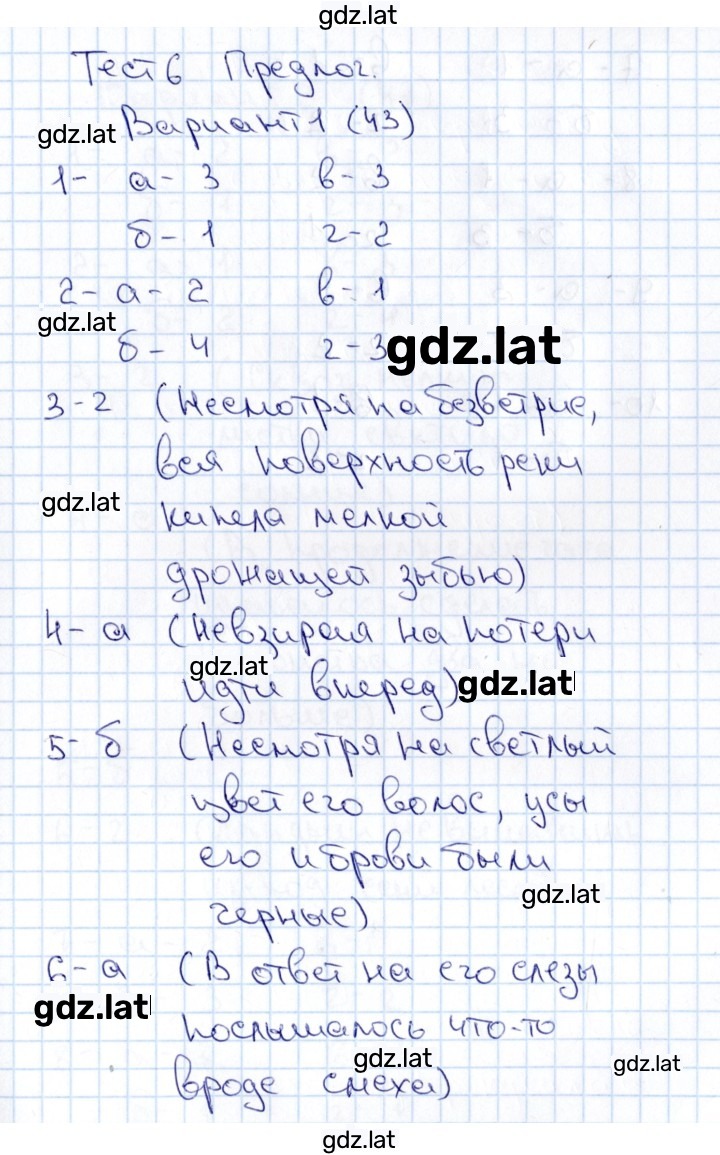 gdz.lat
Тест 6 Предлог.
gdz.lat Вариант 1 (43)
1- а- 3 в- 3
б- 1 г- 2
2- а- 2 в- 1
gdz.lat
б- 4 г- 3 gdz.lat
3-2 (Несмотря на безветрие,
вся поверхность реки
gdz.lat
кипела мелкой
дрожащей зыбью)
4- а (Невзирая на потери
gdz.lat
идти вперед) gdz.lat
5- б (Несмотря на светлый
цвет его волос, усы
его и брови были
gdz.lat
черные)
6- а (В ответ на его слезы
gdz.lat
послышалось что-то
gdz.lat gdz.lat
вроде смеха)
gdz.lat